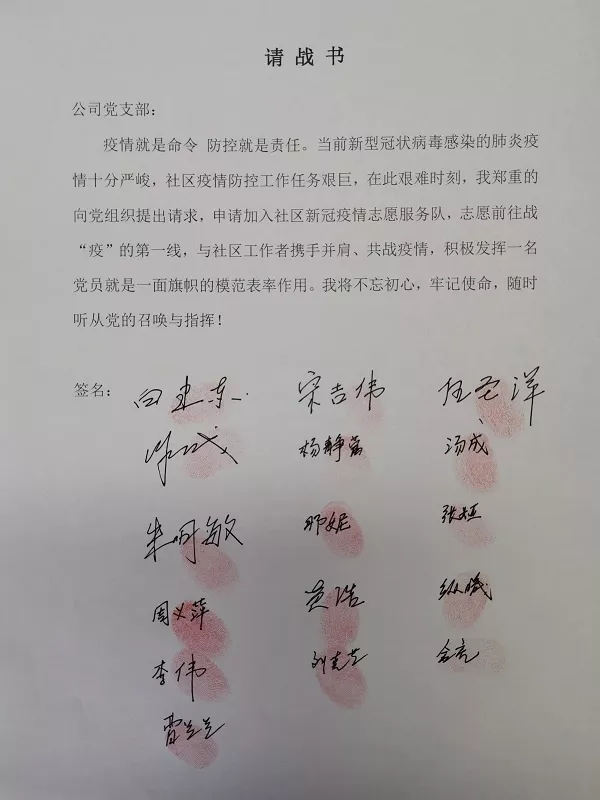 请战书
公司党支部：
疫情就是命令 防控就是责任。当前新型冠状病毒感染的肺炎疫
情十分严峻，社区疫情防控工作任务艰巨，在此艰难时刻，我郑重的
向党组织提出请求，申请加入社区新冠疫情志愿服务队，志愿前往战
“疫”的第一线，与社区工作者携手并肩、共战疫情，积极发挥一名
党员就是一面旗帜的模范表率作用。我将不忘初心，牢记使命，随时
听从党的召唤与指挥！
签名： 白建东 宋吉伟
汤成
朱明敏
周义萍 黄浩
李伟